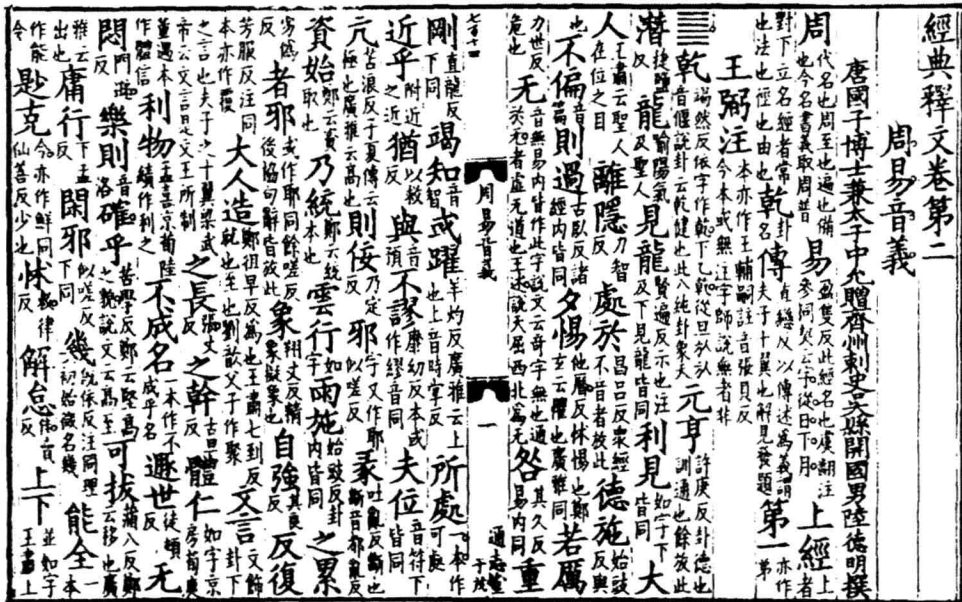 經典釋文卷第二
唐國子博士兼太子中允贈齊州刺史吳縣開國男陸德明撰
周易音義
周代名也周至也遍也備也今名書義取周普易盈隻反此經名也虞翻注參同契云字從日下月上經上者
對下立名經者常也法也徑也由也乾卦名傳直戀反以傳述為義謂夫子十翼也解見發題第一亦作弟
王弼注本亦作王輔嗣註音張具反今本或無注字師說無者非
䷀乾竭然反依字作乾下乙乾從旦㫃㫃音偃說卦云乾健也此八純卦象天元亨許庚反卦德也訓通也餘放此
潛捷鹽反龍喻陽氣及聖人見龍賢遍反示也注及下見龍皆同利見如字下皆同大
人王肅云聖人在位之目離隱力智反處於昌呂反衆經不音者放此德施始豉反與也
不偏音篇則過古臥反諸經內皆同夕惕他歷反怵惕也鄭玄云懼也廣雅同若厲
力世反危也无音無易內皆作此字說文云奇字無也通於无者虛无道也王述說天屈西北為无咎其久反易內同重
七百十四
周易音義
一
通志堂
于茂
剛直龍反下同竭知音智或躍羊灼反廣雅云上也上音時掌反所處一本作可處
近乎附近之近猶以救反與音預不謬靡幼反本或作繆音同夫位音符下皆同
亢苦浪反子夏傳云極也廣雅云高也則佞乃定反邪字又作耶似嗟反彖吐亂反斷也斷音都亂反
資始鄭云資取也乃統鄭云統本也雲行如字雨施始豉反卦內皆同之累
劣偽反者邪或作耶同餘嗟反後協句辭皆放此象翔丈反精象擬象也自強其良反反復
芳服反注同本亦作覆大人造鄭徂早反為也王肅七到反就也至也劉歆父子作聚文言文飾卦下
之言也夫子之十翼梁武帝云文言是文王所制之長張丈反之幹古旦反體仁如字京房荀爽
董遇本作體信利物孟喜京荀陸績作利之不成名一本作不成乎名遯世徒頓反无
悶門遜反樂則音洛確乎苦學反鄭云堅高之貌說文云高至可拔蒲八反鄭云移也廣
雅云出也庸行下孟反閑邪似嗟反下同幾既依反注同理初始微名幾能全一本作能
令尟克仙善反少也今亦作鮮同怵敕律反解怠佳賣反上下並如字王肅上